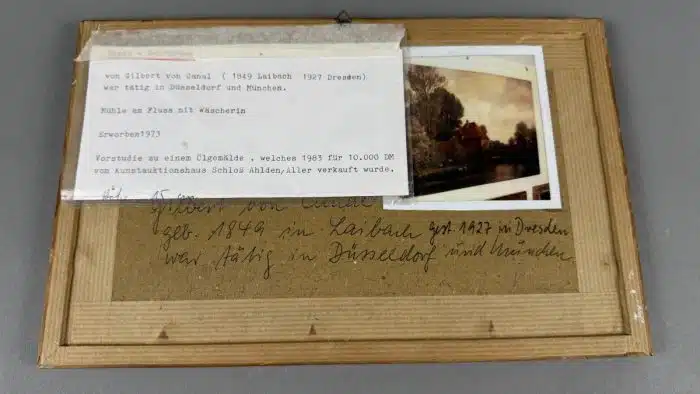 von Gilbert von Canal ( 1849 Laibach 1927 Dresden)
war tätig in Düsseldorf und München.
Mühle am Fluss mit Wäscherin
Erworben1973
Vorstudie zu einem Ölgemälde , welches 1983 für 10.000 DM
vom Kunstauktionshaus Schloß Ahlden/Aller verkauft wurde.
Gilbert von Canal
geb. 1849 in Laibach gest. 1927 in Dresden
war tätig in Düsseldorf und München